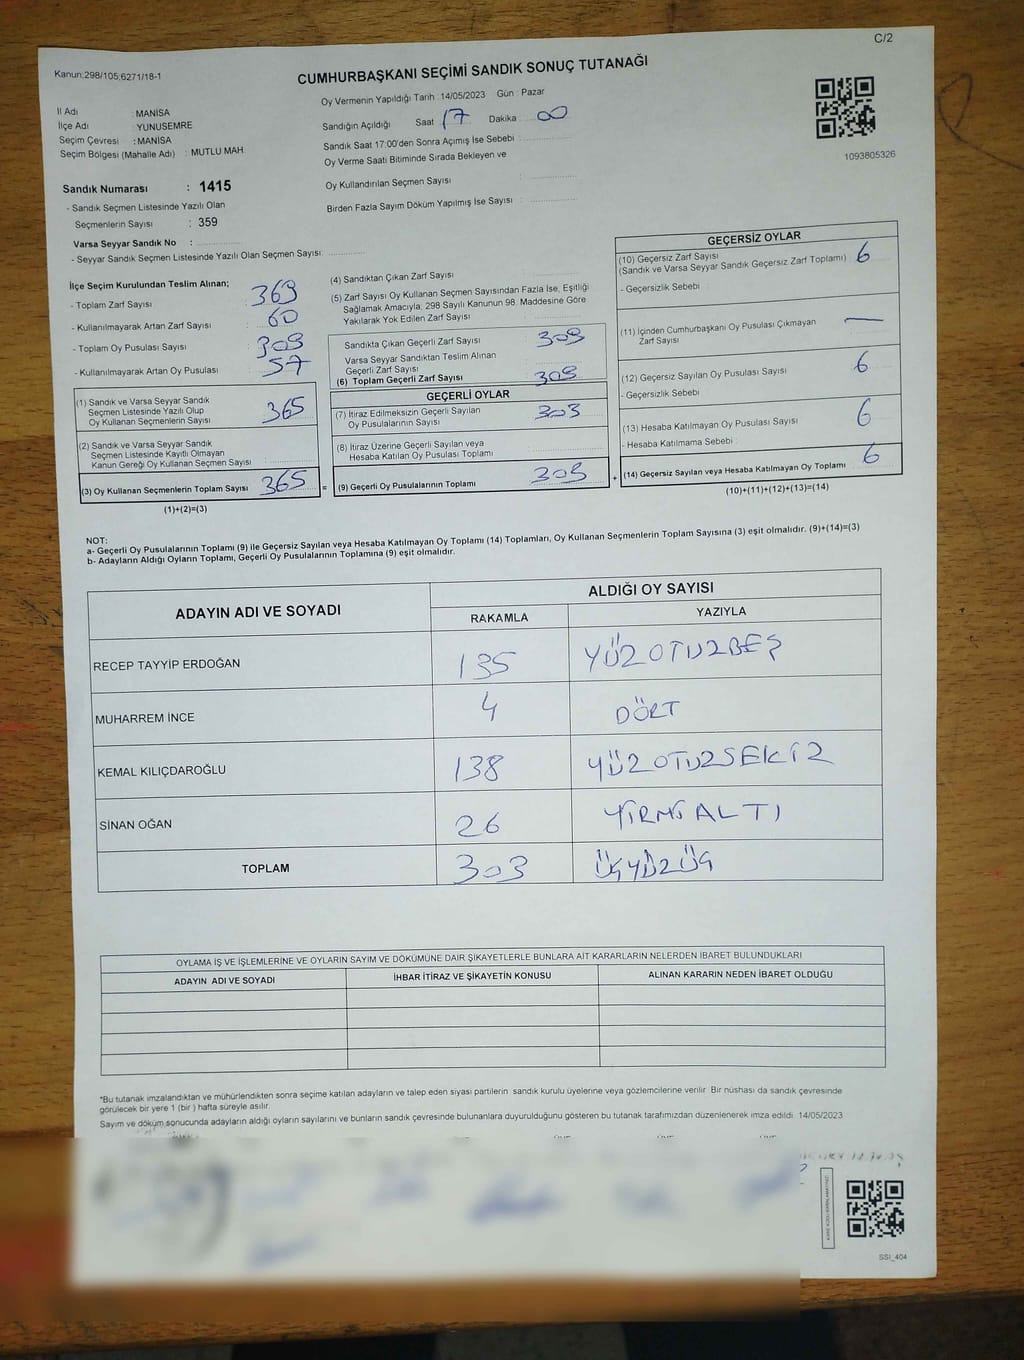 C/2
Kanun:298/105;6271/18-1
CUMHURBAŞKANI SEÇİMİ SANDIK SONUÇ TUTANAĞI
Oy Vermenin Yapıldığı Tarih :14/05/2023 Gün : Pazar
İl Adı : MANİSA
İlçe Adı : YUNUSEMRE
Seçim Çevresi : MANİSA
Seçim Bölgesi (Mahalle Adı) : MUTLU MAH.
Sandığın Açıldığı Saat 17 Dakika 00
Sandık Saat 17:00'den Sonra Açımış İse Sebebi :
Oy Verme Saati Bitiminde Sırada Bekleyen ve
Oy Kullandırılan Seçmen Sayısı :
Birden Fazla Sayım Döküm Yapılmış İse Sayısı :
1093805326
Sandık Numarası : 1415
- Sandık Seçmen Listesinde Yazılı Olan
Seçmenlerin Sayısı : 359
Varsa Seyyar Sandık No :
- Seyyar Sandık Seçmen Listesinde Yazılı Olan Seçmen Sayısı:
İlçe Seçim Kurulundan Teslim Alınan;
- Toplam Zarf Sayısı 369
- Kullanılmayarak Artan Zarf Sayısı 60
- Toplam Oy Pusulası Sayısı
- Kullanılmayarak Artan Oy Pusulası 57
(1) Sandık ve Varsa Seyyar Sandık
Seçmen Listesinde Yazılı Olup
Oy Kullanan Seçmenlerin Sayısı 365
(2) Sandık ve Varsa Seyyar Sandık
Seçmen Listesinde Kayıtlı Olmayan
Kanun Gereği Oy Kullanan Seçmen Sayısı
(3) Oy Kullanan Seçmenlerin Toplam Sayısı 365 =
(1)+(2)=(3)
(4) Sandıktan Çıkan Zarf Sayısı
(5) Zarf Sayısı Oy Kullanan Seçmen Sayısından Fazla İse, Eşitliği
Sağlamak Amacıyla, 298 Sayılı Kanunun 98. Maddesine Göre
Yakılarak Yok Edilen Zarf Sayısı
Sandıkta Çıkan Geçerli Zarf Sayısı 309
Varsa Seyyar Sandıktan Teslim Alınan
Geçerli Zarf Sayısı
(6) Toplam Geçerli Zarf Sayısı 309
GEÇERLİ OYLAR
(7) İtiraz Edilmeksizin Geçerli Sayılan
Oy Pusulalarının Sayısı 303
(8) İtiraz Üzerine Geçerli Sayılan veya
Hesaba Katılan Oy Pusulası Toplamı
(9) Geçerli Oy Pusulalarının Toplamı +
GEÇERSİZ OYLAR
(10) Geçersiz Zarf Sayısı 6
(Sandık ve Varsa Seyyar Sandık Geçersiz Zarf Toplamı)
- Geçersizlik Sebebi :
(11) İçinden Cumhurbaşkanı Oy Pusulası Çıkmayan —
Zarf Sayısı
(12) Geçersiz Sayılan Oy Pusulası Sayısı 6
- Geçersizlik Sebebi
(13) Hesaba Katılmayan Oy Pusulası Sayısı 6
- Hesaba Katılmama Sebebi :
(14) Geçersiz Sayılan veya Hesaba Katılmayan Oy Toplamı 6
(10)+(11)+(12)+(13)=(14)
NOT:
a- Geçerli Oy Pusulalarının Toplamı (9) ile Geçersiz Sayılan veya Hesaba Katılmayan Oy Toplamı (14) Toplamları, Oy Kullanan Seçmenlerin Toplam Sayısına (3) eşit olmalıdır. (9)+(14)=(3)
b- Adayların Aldığı Oyların Toplamı, Geçerli Oy Pusulalarının Toplamına (9) eşit olmalıdır.
ADAYIN ADI VE SOYADI ALDIĞI OY SAYISI
RAKAMLA YAZIYLA
RECEP TAYYİP ERDOĞAN 135 YÜZOTUZBEŞ
MUHARREM İNCE 4 DÖRT
KEMAL KILIÇDAROĞLU 138 YÜZOTUZSEKİZ
SİNAN OĞAN 26 YİRMİALTI
TOPLAM 303 ÜÇYÜZÜÇ
OYLAMA İŞ VE İŞLEMLERİNE VE OYLARIN SAYIM VE DÖKÜMÜNE DAİR ŞİKAYETLERLE BUNLARA AİT KARARLARIN NELERDEN İBARET BULUNDUKLARI
ADAYIN ADI VE SOYADI İHBAR İTİRAZ VE ŞİKAYETİN KONUSU ALINAN KARARIN NEDEN İBARET OLDUĞU
*Bu tutanak imzalandıktan ve mühürlendikten sonra seçime katılan adayların ve talep eden siyasi partilerin sandık kurulu üyelerine veya gözlemcilerine verilir. Bir nüshası da sandık çevresinde
görülecek bir yere 1 (bir) hafta süreyle asılır.
Sayım ve döküm sonucunda adayların aldığı oyların sayılarını ve bunların sandık çevresinde bulunanlara duyurulduğunu gösteren bu tutanak tarafımızdan düzenlenerek imza edildi. 14/05/2023
SSI_404